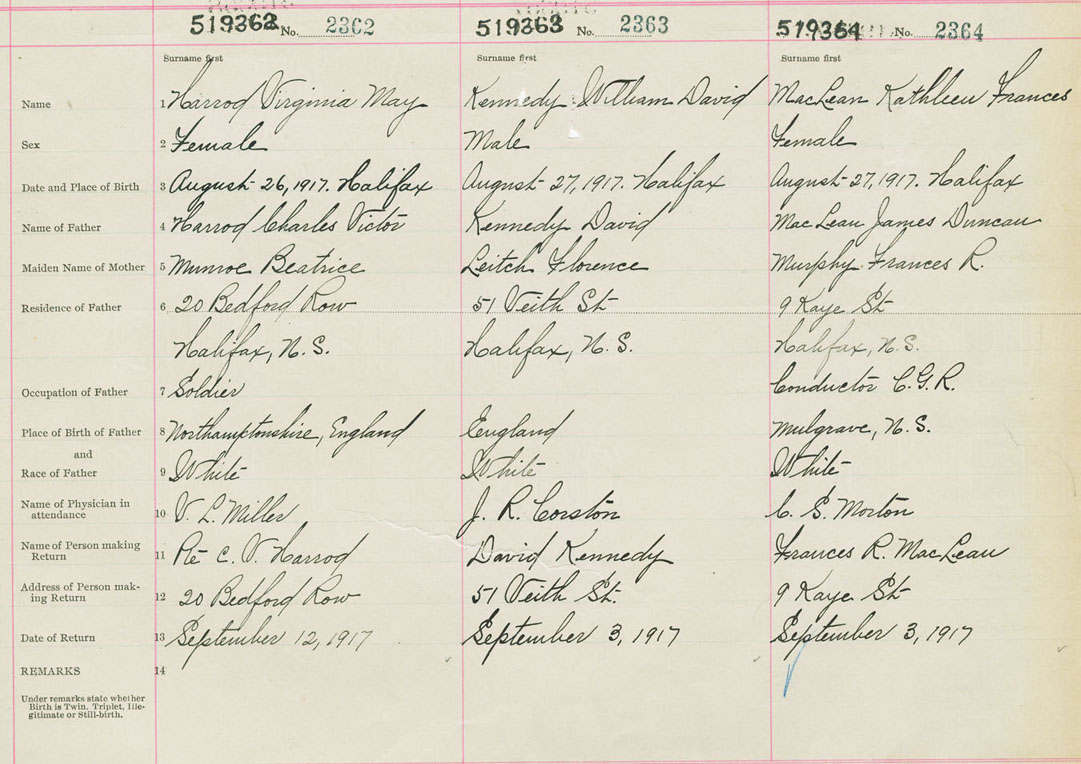 519362 No. 2362 519363 No. 2363 519364 No. 2364
Surname first Surname first Surname first
Name 1 Harrod Virginia May Kennedy William David MacLean Kathleen Frances
Sex 2 Female Male Female
Date and Place of Birth 3 August 26, 1917. Halifax August 27, 1917. Halifax August 27, 1917. Halifax
Name of Father 4 Harrod Charles Victor Kennedy David MacLean James Duncan
Maiden Name of Mother 5 Munroe Beatrice Leitch Florence Murphy Frances R.
Residence of Father 6 20 Bedford Row 51 Veith St 9 Kaye St
Halifax, N.S. Halifax, N.S. Halifax, N.S.
Occupation of Father 7 Soldier Conductor C.G.R.
Place of Birth of Father 8 Northamptonshire, England England Mulgrave, N.S.
and
Race of Father 9 White White White
Name of Physician in
attendance 10 V. L. Miller J. R. Corston C. S. Morton
Name of Person making
Return 11 Pte C. V. Harrod David Kennedy Frances R. MacLean
Address of Person mak-
ing Return 12 20 Bedford Row 51 Veith St. 9 Kaye St
Date of Return 13 September 12, 1917 September 3, 1917 September 3, 1917
REMARKS 14
Under remarks state whether
Birth is Twin, Triplet, Ille-
gitimate or Still-birth.